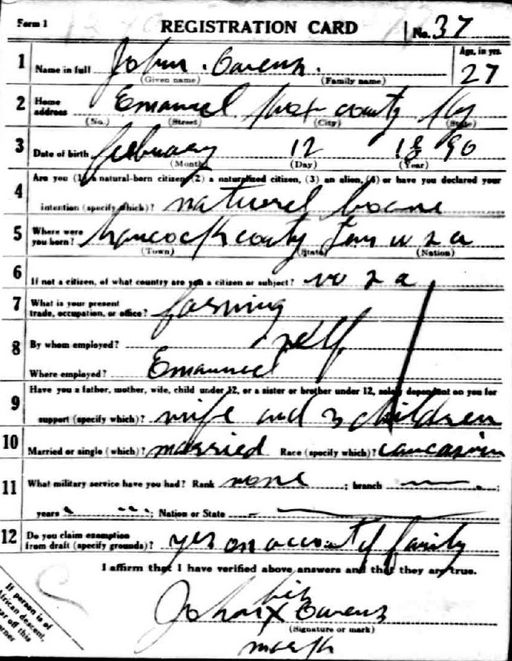 Form 1 REGISTRATION CARD No. 37
1 Name in full John Owens. Age, in yrs. 27
(Given name) (Family name)
2 Home address Emanuel knox county Ky
(No.) (Street) (City) (State)
3 Date of birth february 12 1890
(Month) (Day) (Year)
Are you (1) a natural-born citizen, (2) a naturalized citizen, (3) an alien, (4) or have you declared your
4 intention (specify which)? naturel boane
5 Where were you born? hancock county Tenn u s a
(Town) (State) (Nation)
6 If not a citizen, of what country are you a citizen or subject? u s a
7 What is your present trade, occupation, or office? farming
8 By whom employed? self
Where employed? Emanuel
9 Have you a father, mother, wife, child under 12, or a sister or brother under 12, solely dependent on you for
support (specify which)? wife and 3 children
10 Married or single (which)? married Race (specify which)? caucasion
11 What military service have you had? Rank none ; branch
years ; Nation or State
12 Do you claim exemption from draft (specify grounds)? yes on account of family
I affirm that I have verified above answers and that they are true.
his
John X Owens
(Signature or mark)
mark
If person is of
African descent,
tear off this
corner